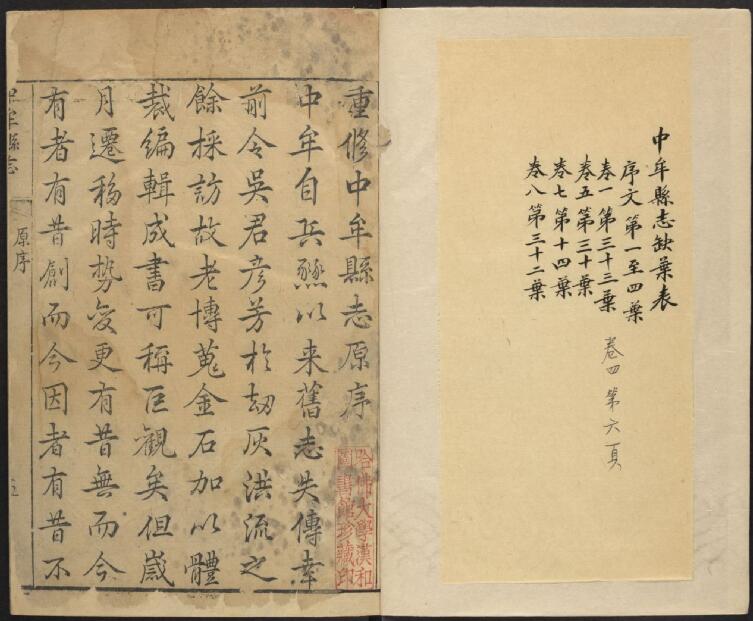 中牟縣志缺葉表
序文第一至四葉
卷一第三十三葉
卷五第三十葉
卷七第十四葉
卷八第三十二葉
卷四第六頁
重修中牟縣志原序
中牟自兵燹以来舊志失傳幸
前令吳君彦芳於劫灰洪流之
餘採訪故老博蒐金石加以體
裁編輯成書可稱巨觀矣但歲
月遷移時勢變更有昔無而今
有者有昔創而今因者有昔不
哈佛大學漢和
圖書館珍藏印
中牟縣志
原序
五